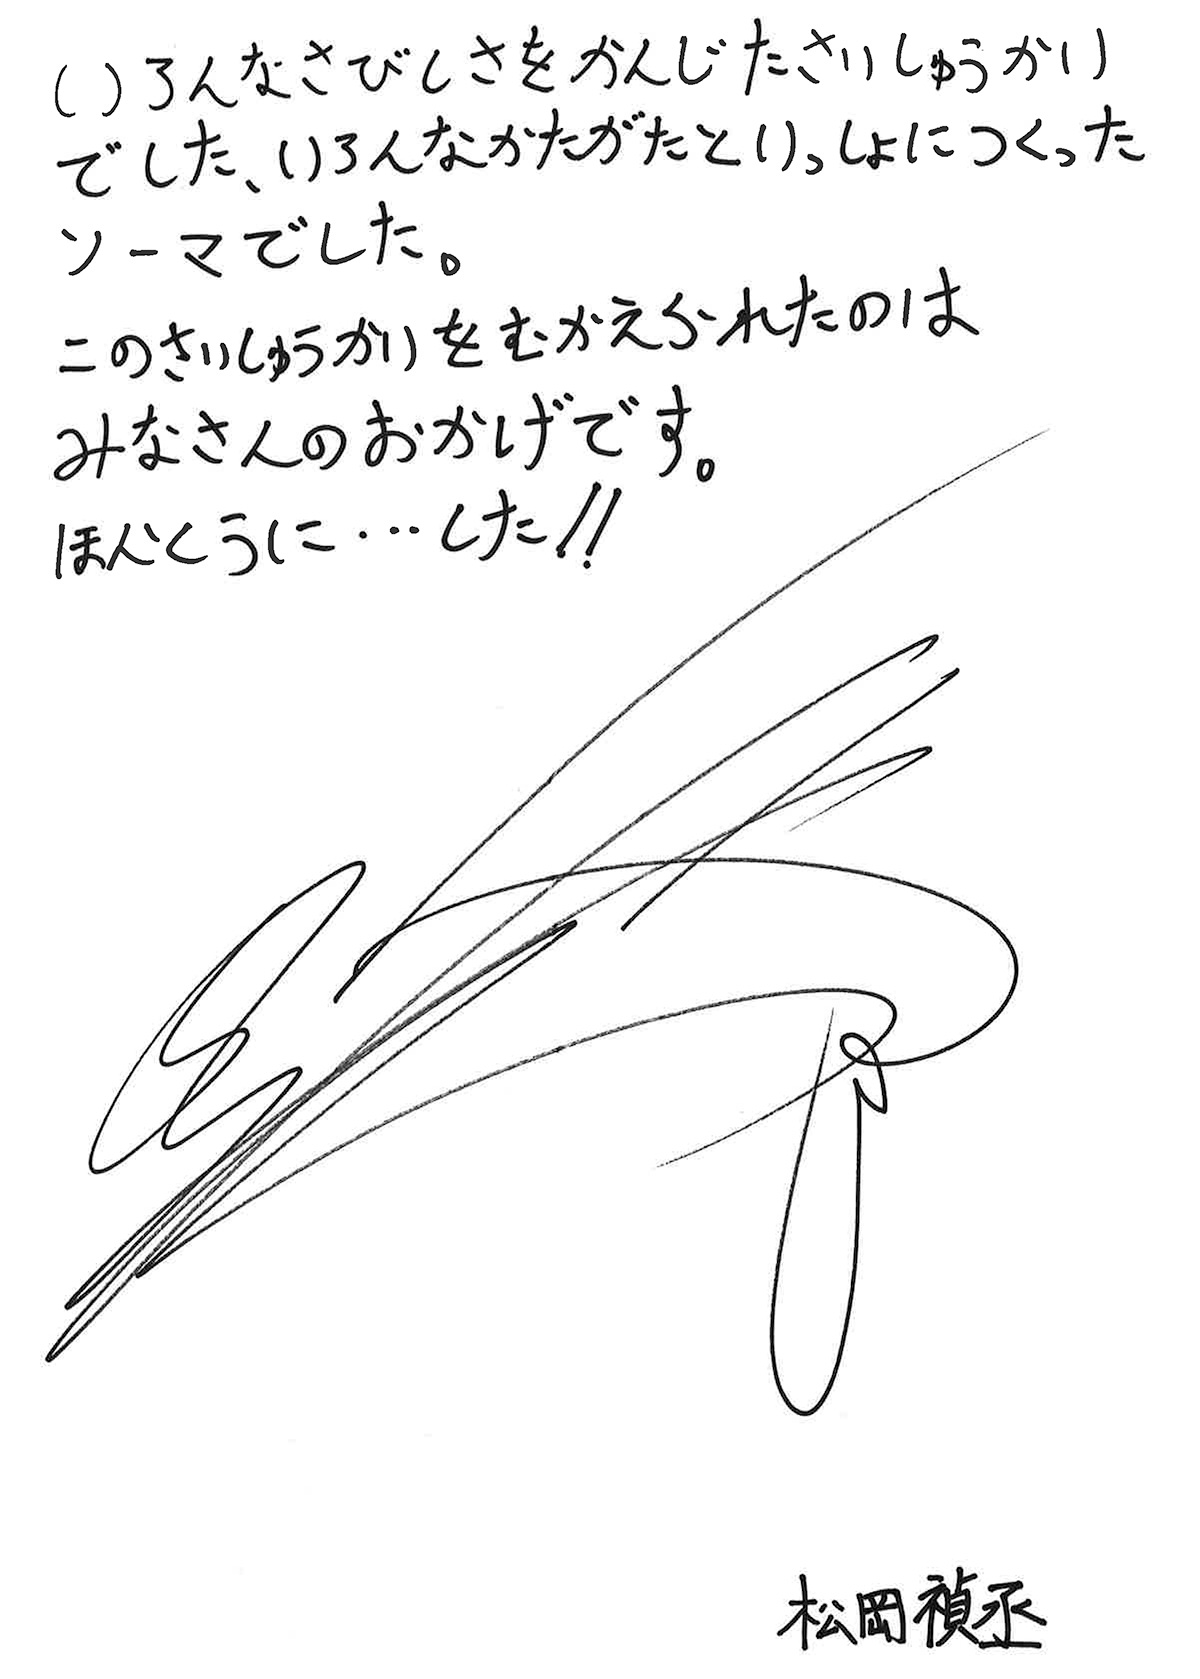 いろんなさびしさをかんじたさいしゅうかい
でした、いろんなかたがたといっしょにつくった
ソーマでした。
このさいしゅうかいをむかえられたのは
みなさんのおかげです。
ほんとうに…した!!
松岡禎丞